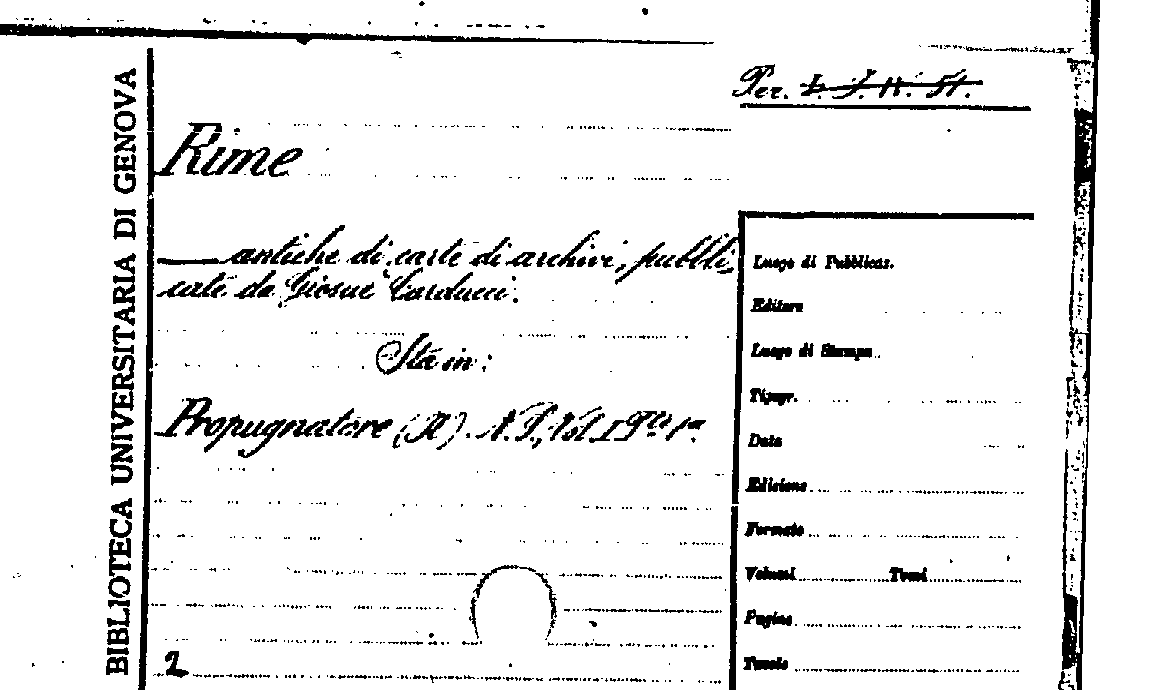 BIBLIOTECA UNIVERSITARIA DI GENOVA
Per. L. J. H. 51.
Rime
antiche di carte di archivi, pubbli,
cate da Giosuè Carducci.
Sta in:
Propugnatore (Il). N.S., Vol I Pte 1a.
2
Luogo di Pubblicaz.
Editore
Luogo di Stampa
Tipogr.
Data
Edizione
Formato
Volumi Tomi
Pagine
Tavole